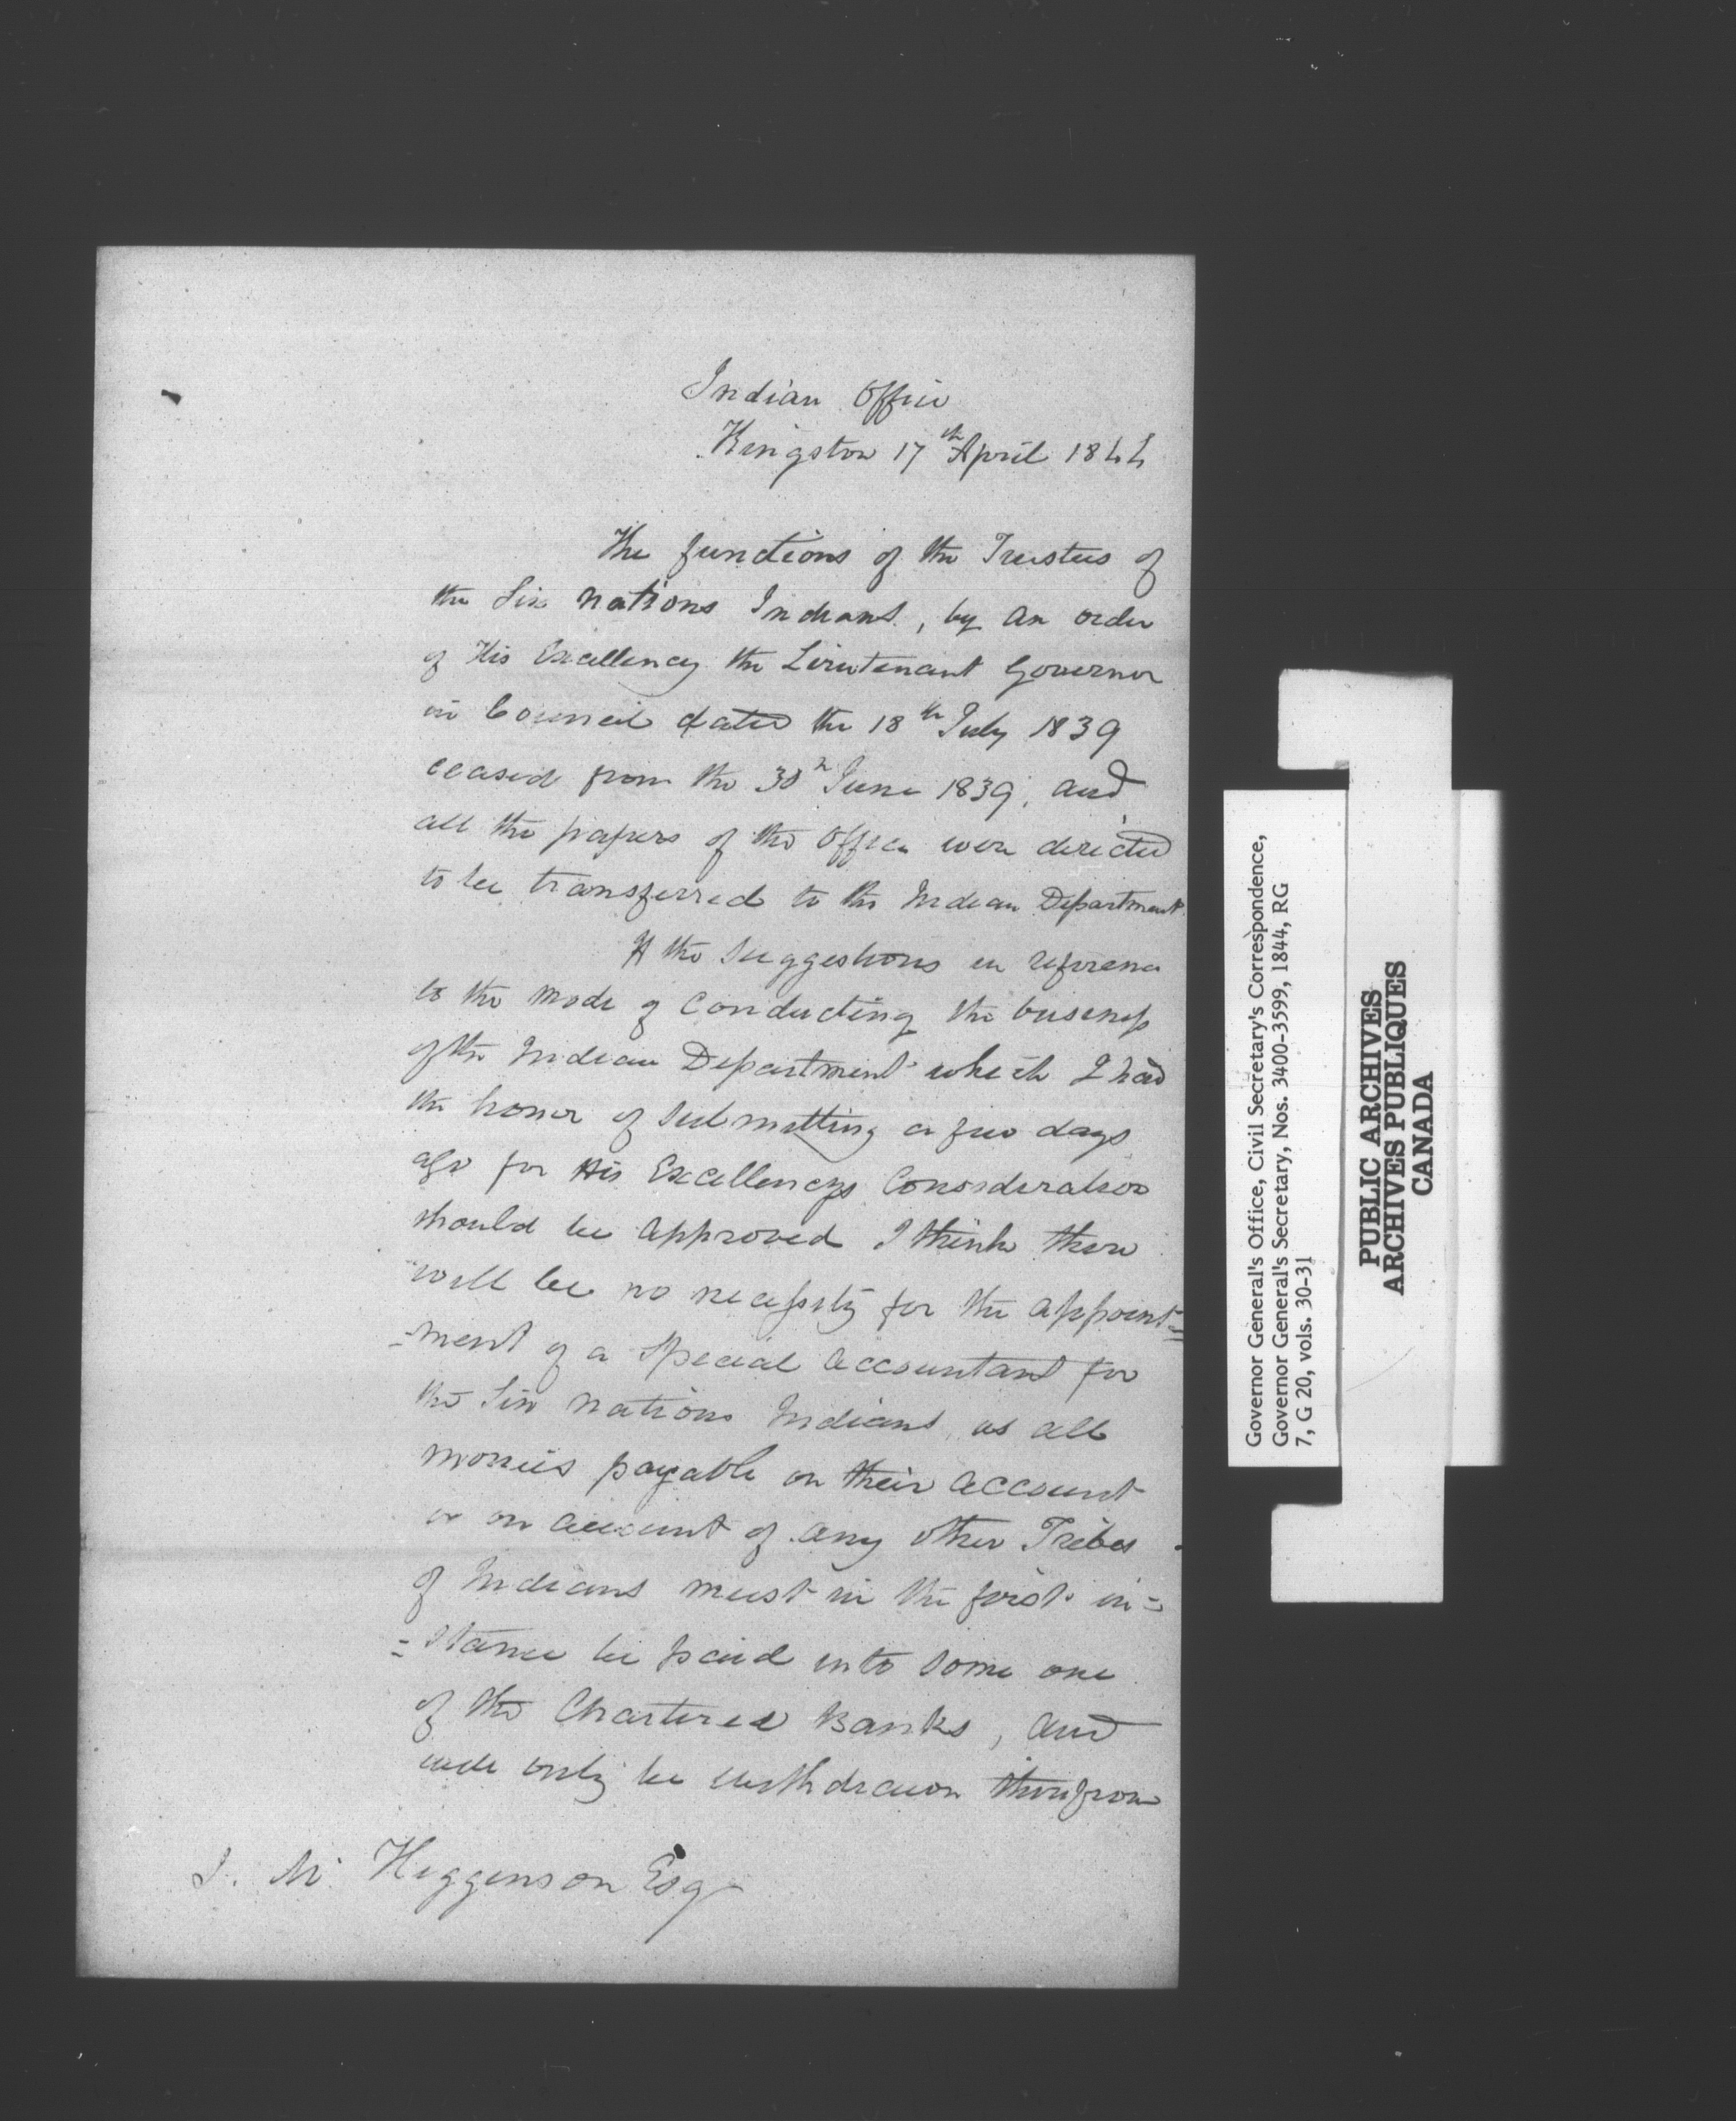 Indian Office
Kingston 17th April 1844
The functions of the Trustees of
the Six Nations Indians, by an order
of His Excellency the Lieutenant Governor
in Council dated the 18th July 1839
ceased from the 30th June 1839, and
all the papers of the Office were directed
to be transferred to the Indian Department.
If the suggestions in reference
to the mode of conducting the business
of the Indian Department which I had
the honor of submitting a few days
ago for His Excellencys Consideration
should be approved I think there
will be no necessity for the appoint=
=ment of a Special Accountant for
the Six Nations Indians, as all
monies payable on their account
or on account of any other Tribes
of Indians must in the first in=
=stance be paid into some one
of the Chartered Banks, and
can only be withdrawn therefrom
J. M. Higginson Esq
Governor General's Office, Civil Secretary's Correspondence,
Governor General's Secretary, Nos. 3400-3599, 1844, RG
7, G 20, vols. 30-31
PUBLIC ARCHIVES
ARCHIVES PUBLIQUES
CANADA